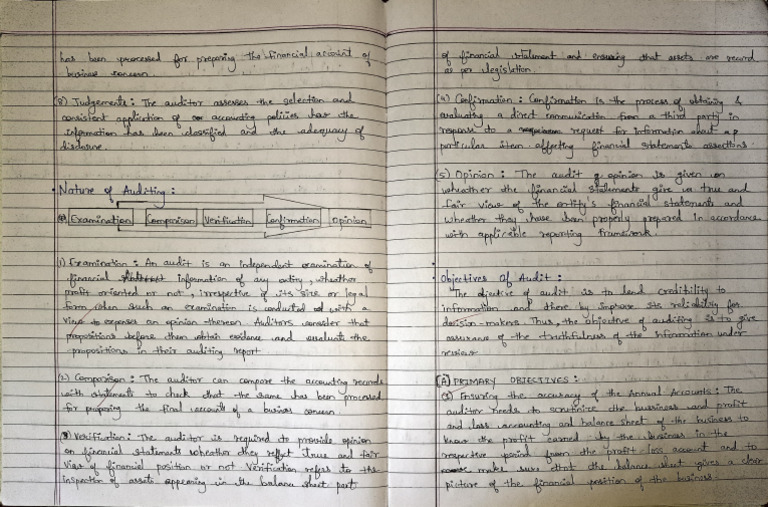 has been processed for preparing the financial account of
business concern.
(8) Judgements: The auditor assesses the selection and
consistent application of accounting policies how the
information has been classified and the adequacy of
disclosure.
Nature of Auditing:
Examination Comparison Verification Confirmation Opinion
(1) Examination: An audit is an independent examination of
financial information of any entity, wheather
profit oriented or not, irrespective of its size or legal
form when such an examination is conducted with a
view to express an opinion thereon. Auditors consider that
propositions before them obtain evidence and evaluate the
propositions in their auditing report
(2) Comparison: The auditor can compare the accounting records
with statements to check that the same has been processed
for preparing the final accounts of a business concern.
(3) Verification: The auditor is required to provide opinion
on financial statements wheather they reflect true and fair
view of financial position or not Verification refers to the
inspection of assets appearing in the balance sheet part
of financial statement and ensuring that assets are record
as per legislation.
(4) Confirmation: Confirmation is the process of obtaining &
evaluating a direct communication from a third party in
response to a request for information about a
particular item affecting financial statements assertions.
(5) Opinion: The audit opinion is given on
wheather the financial statements give a true and
fair view of the entity's financial statements and
wheather they have been properly prepared in accordance
with applicable reporting framework.
Objectives Of Audit:
The objective of audit is to lend credibility to
information and there by improve its reliability for
decision-makers Thus, the objective of auditing is to give
assurance of the truthfulness of the information under
review
(A) PRIMARY OBJECTIVES:
Ensuring the accuracy of the Annual Accounts: The
auditor needs to scrutinize the bussiness and profit
and loss accounting and balance sheet of the business to
know the profit earned by the business in the
respective period from the profit loss account and to
make sure that the balance sheet gives a clear
picture of the financial position of the business.